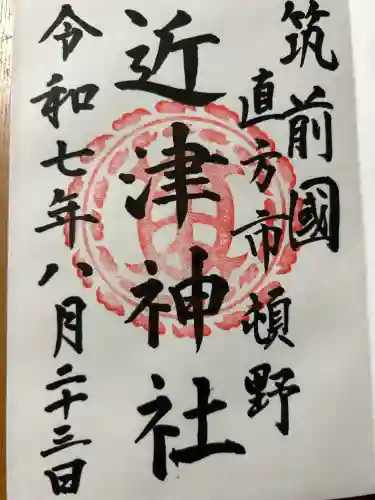 筑前國
直方市頓野
近津神社
令和七年八月二十三日